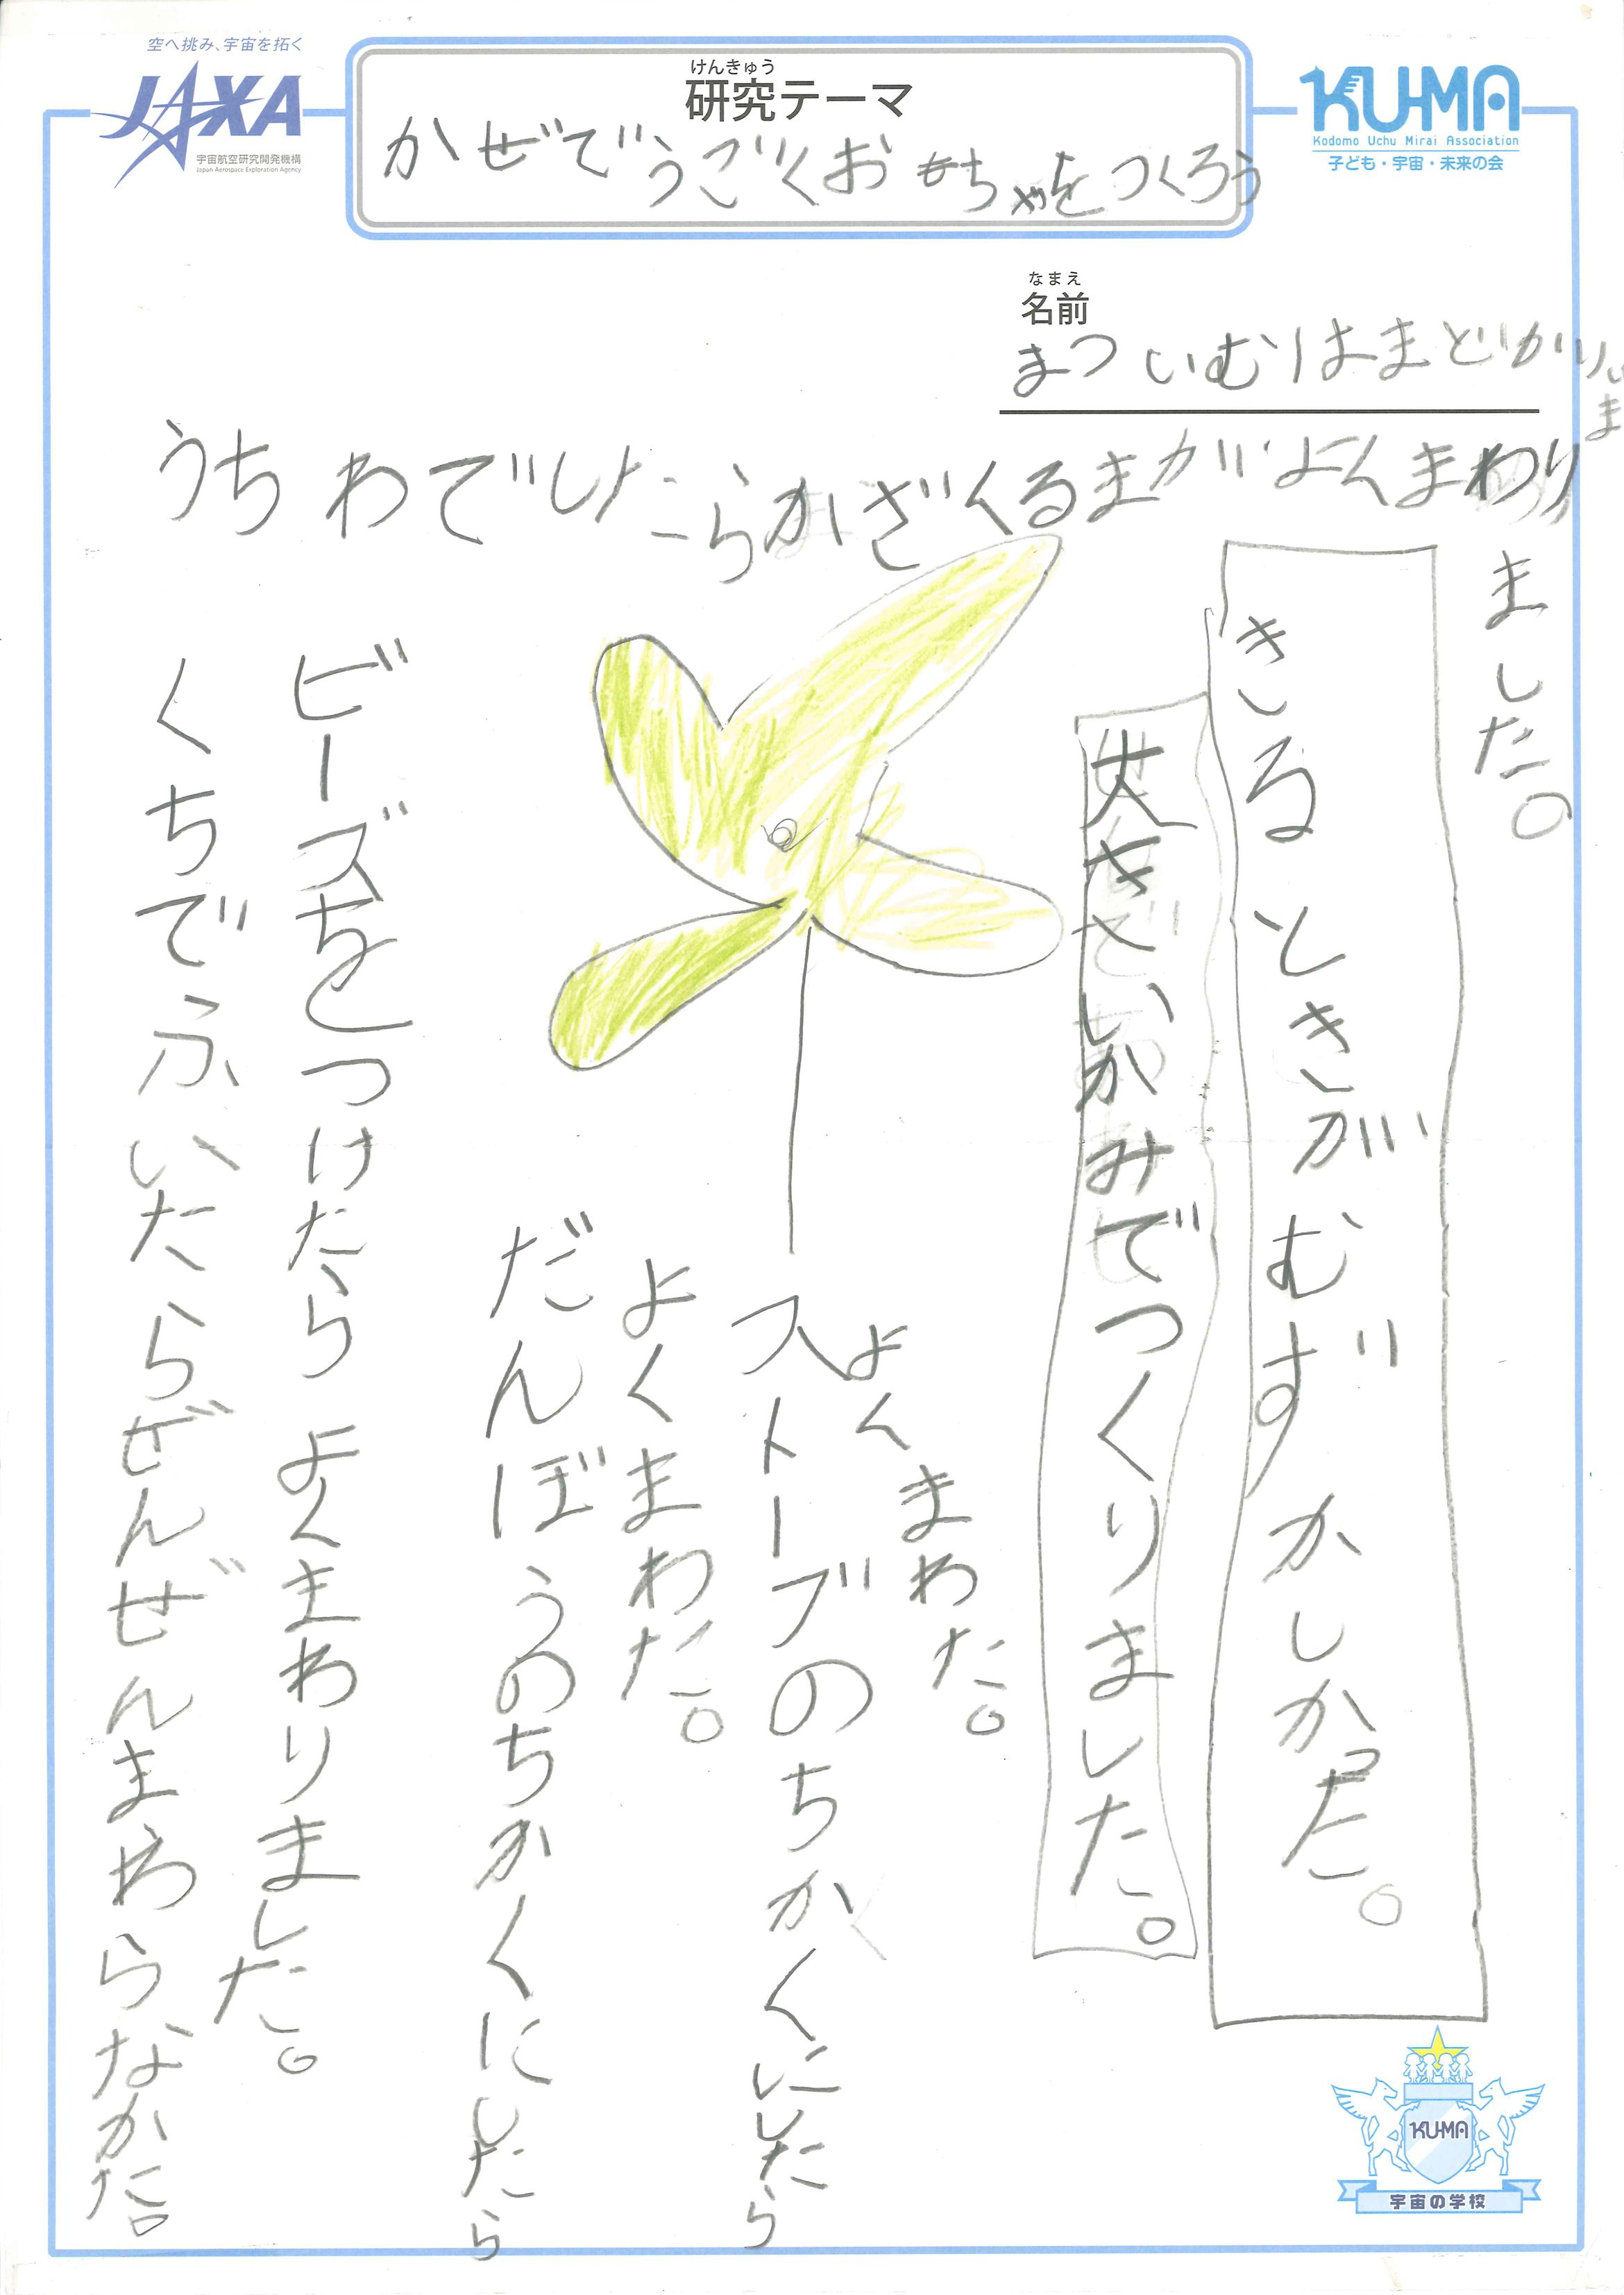 空へ挑み、宇宙を拓く
JAXA
宇宙航空研究開発機構
Japan Aerospace Exploration Agency
けんきゅう
研究テーマ
かぜでうごくおもちゃをつくろう
KUMA
Kodomo Uchu Mirai Association
子ども・宇宙・未来の会
なまえ
名前
うちわでしたらかざくるまがよくまわり
ました。
きるときがむずかしかった。
大きいかみでつくりました。
よくまわた。
ストーブのちかくにしたら
よくまわた。
だんぼうのちかくにしたら
ビーズをつけたらよくまわりました。
くちでふいたらぜんぜんまわらなかた。
KUMA
宇宙の学校